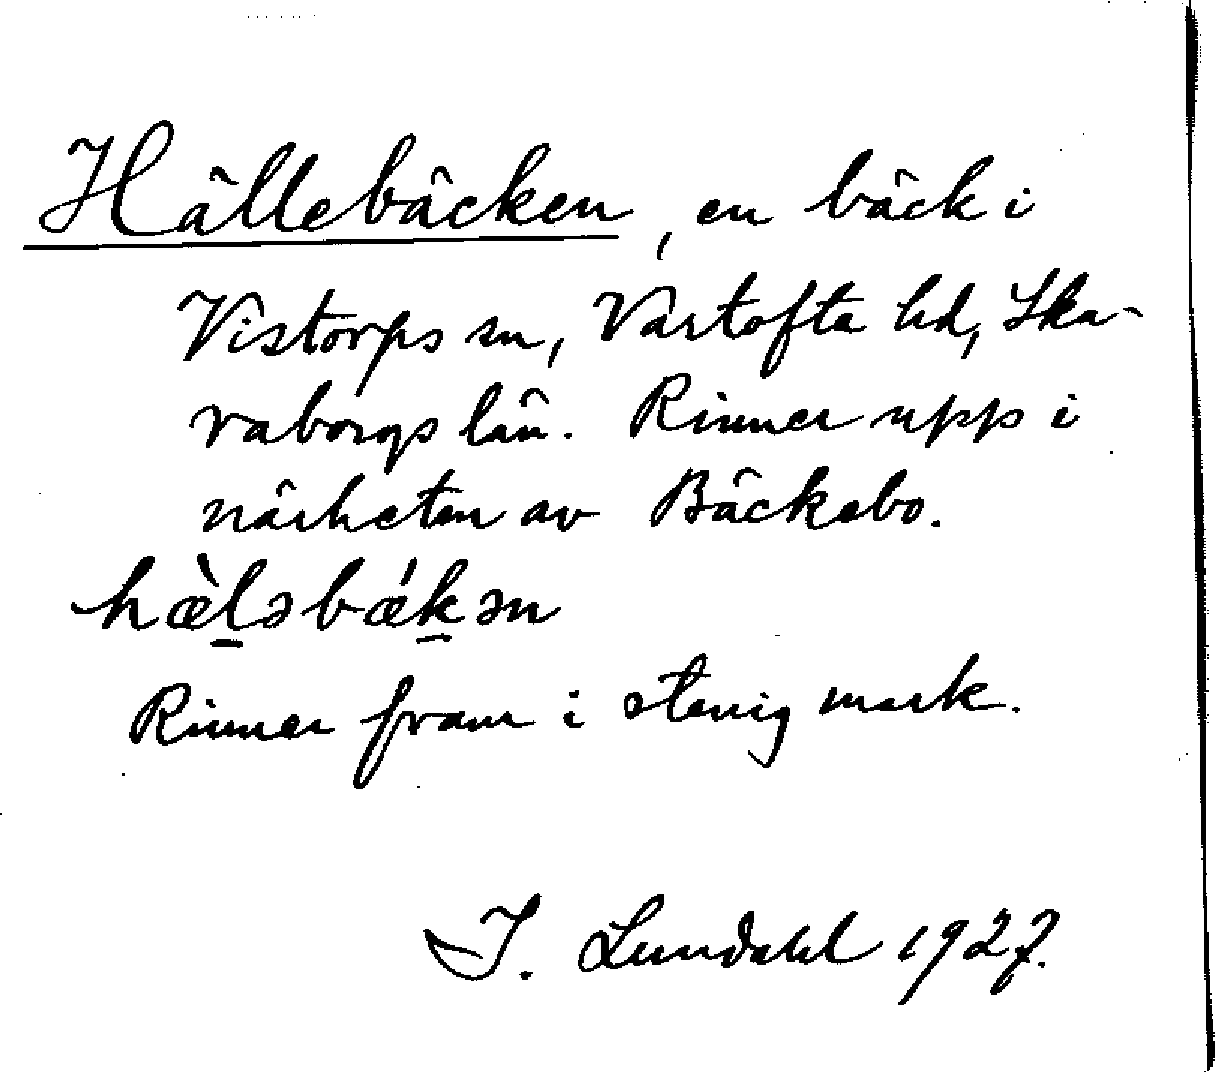 Hällebäcken, en bäck i
Vistorps sn, Vartofta hd, Ska-
raborgs län. Rinner upp i
närheten av Bäckebo.
hæ̀l̠əbǽk̠ən
Rinner fram i stenig mark.
I. Lundahl 1927.